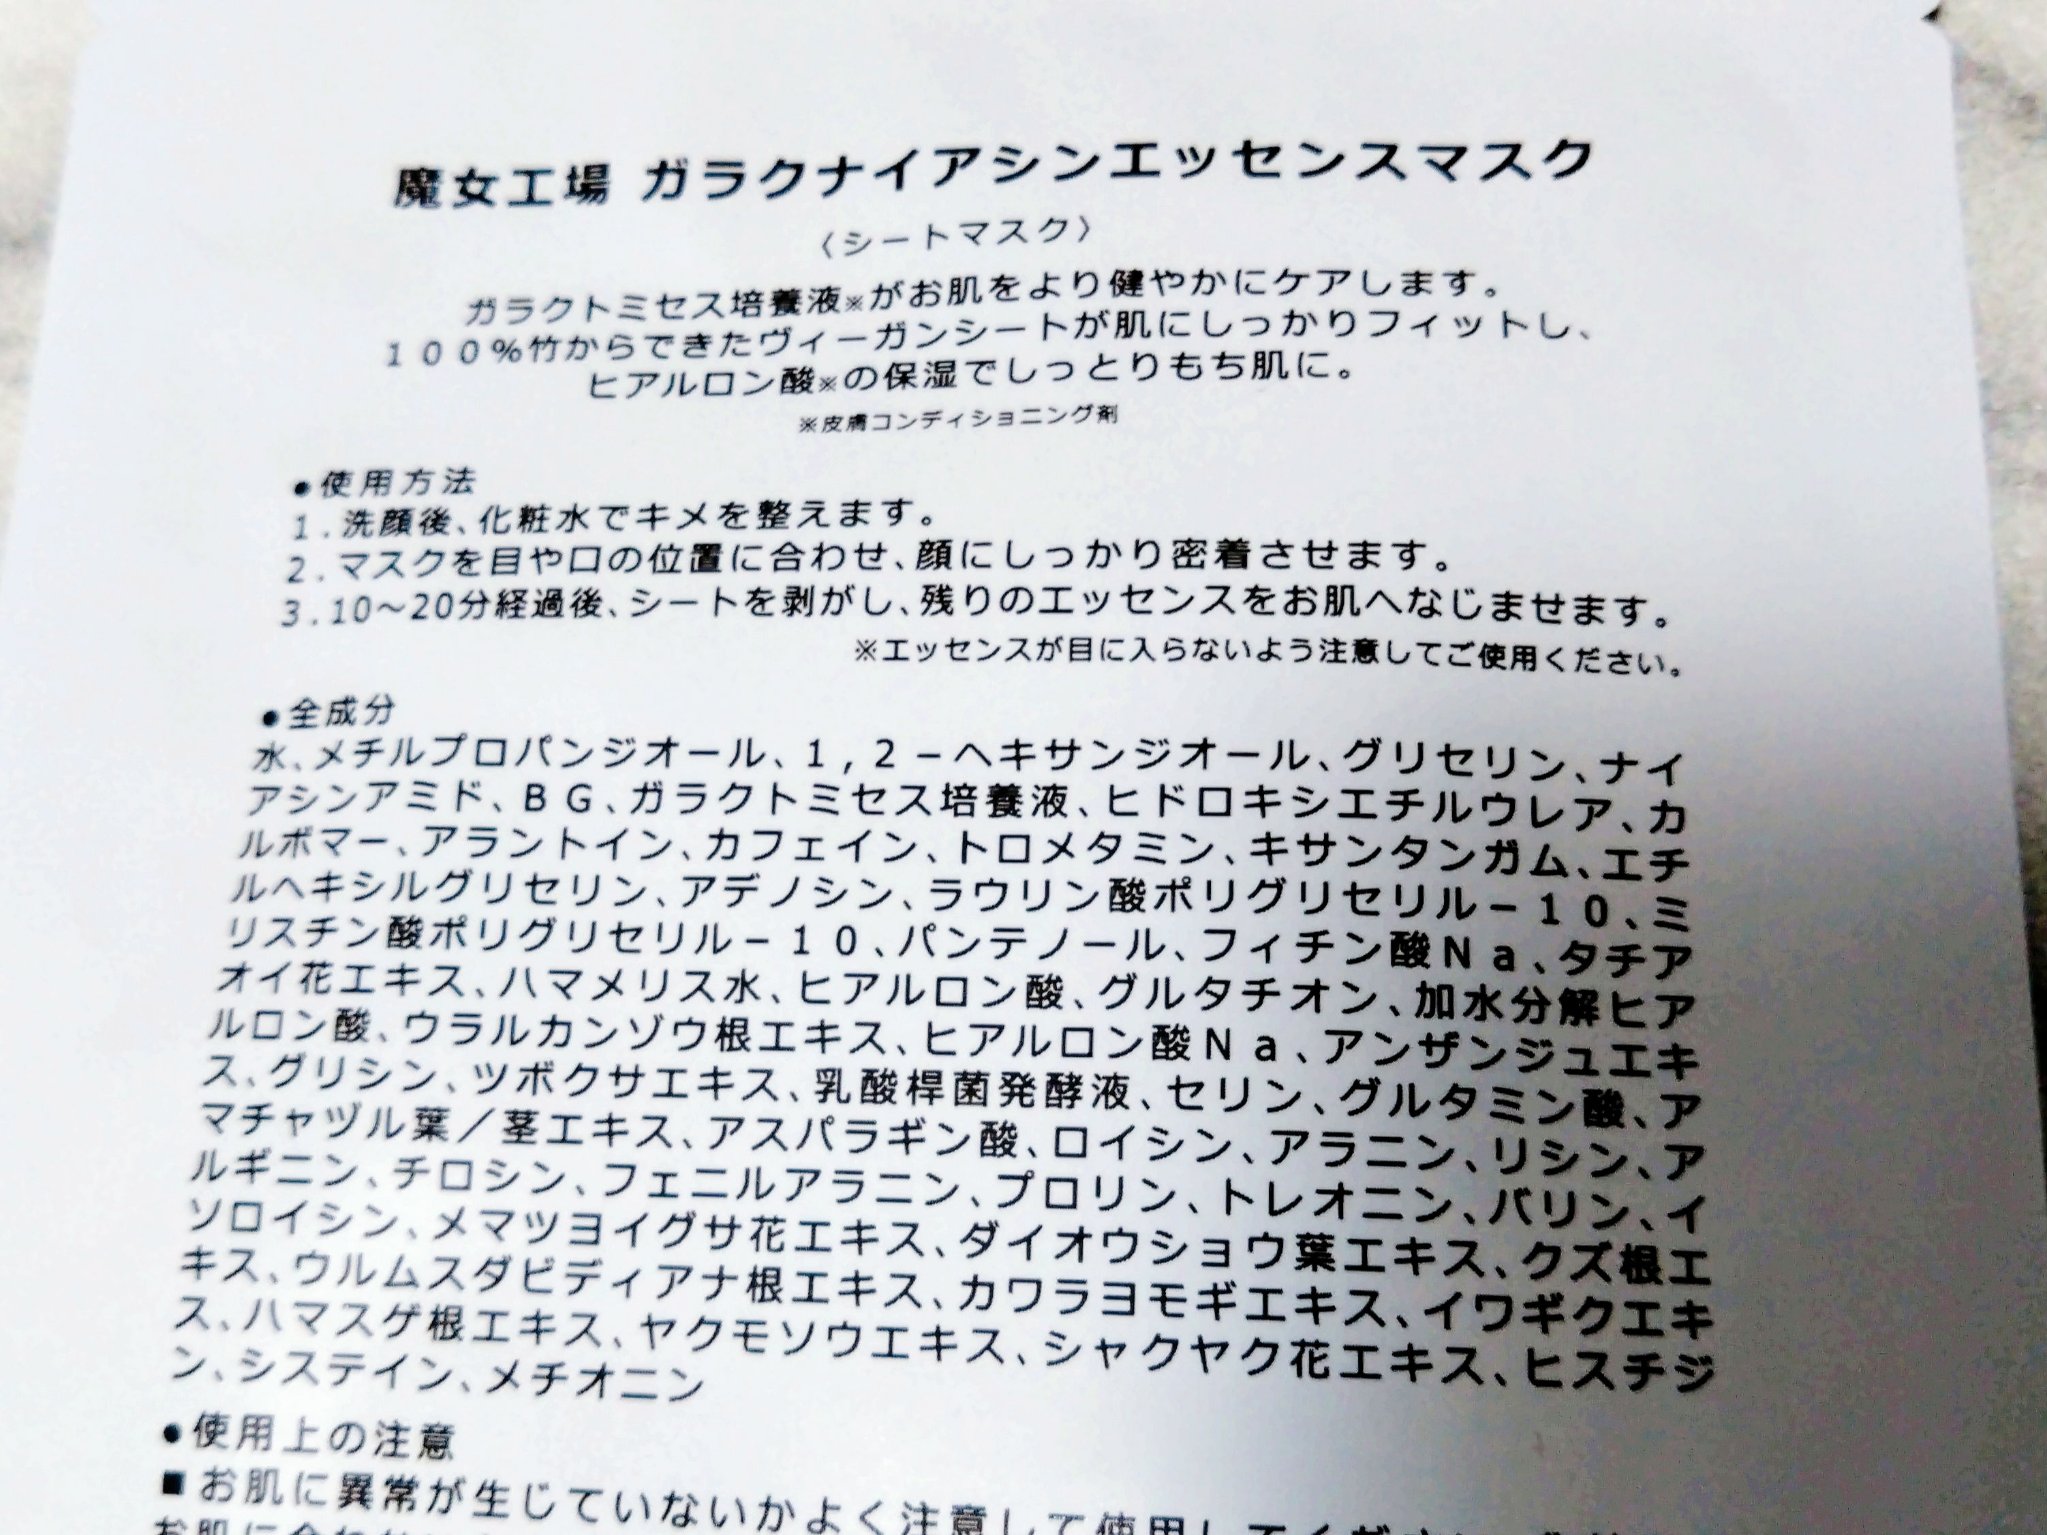 魔女工場 ガラクナイアシンエッセンスマスク
〈シートマスク〉
ガラクトミセス培養液※がお肌をより健やかにケアします。
100%竹からできたヴィーガンシートが肌にしっかりフィットし、
ヒアルロン酸※の保湿でしっとりもち肌に。
※皮膚コンディショニング剤
●使用方法
1.洗顔後、化粧水でキメを整えます。
2.マスクを目や口の位置に合わせ、顔にしっかり密着させます。
3.10～20分経過後、シートを剥がし、残りのエッセンスをお肌へなじませます。
※エッセンスが目に入らないよう注意してご使用ください。
●全成分
水、メチルプロパンジオール、1,2－ヘキサンジオール、グリセリン、ナイ
アシンアミド、BG、ガラクトミセス培養液、ヒドロキシエチルウレア、カ
ルボマー、アラントイン、カフェイン、トロメタミン、キサンタンガム、エチ
ルヘキシルグリセリン、アデノシン、ラウリン酸ポリグリセリル－10、ミ
リスチン酸ポリグリセリル－10、パンテノール、フィチン酸Na、タチア
オイ花エキス、ハマメリス水、ヒアルロン酸、グルタチオン、加水分解ヒア
ルロン酸、ウラルカンゾウ根エキス、ヒアルロン酸Na、アンザンジュエキ
ス、グリシン、ツボクサエキス、乳酸桿菌発酵液、セリン、グルタミン酸、ア
マチャヅル葉／茎エキス、アスパラギン酸、ロイシン、アラニン、リシン、ア
ルギニン、チロシン、フェニルアラニン、プロリン、トレオニン、バリン、イ
ソロイシン、メマツヨイグサ花エキス、ダイオウショウ葉エキス、クズ根エ
キス、ウルムスダビディアナ根エキス、カワラヨモギエキス、イワギクエキ
ス、ハマスゲ根エキス、ヤクモソウエキス、シャクヤク花エキス、ヒスチジ
ン、システイン、メチオニン
●使用上の注意
■お肌に異常が生じていないかよく注意して使用してください。